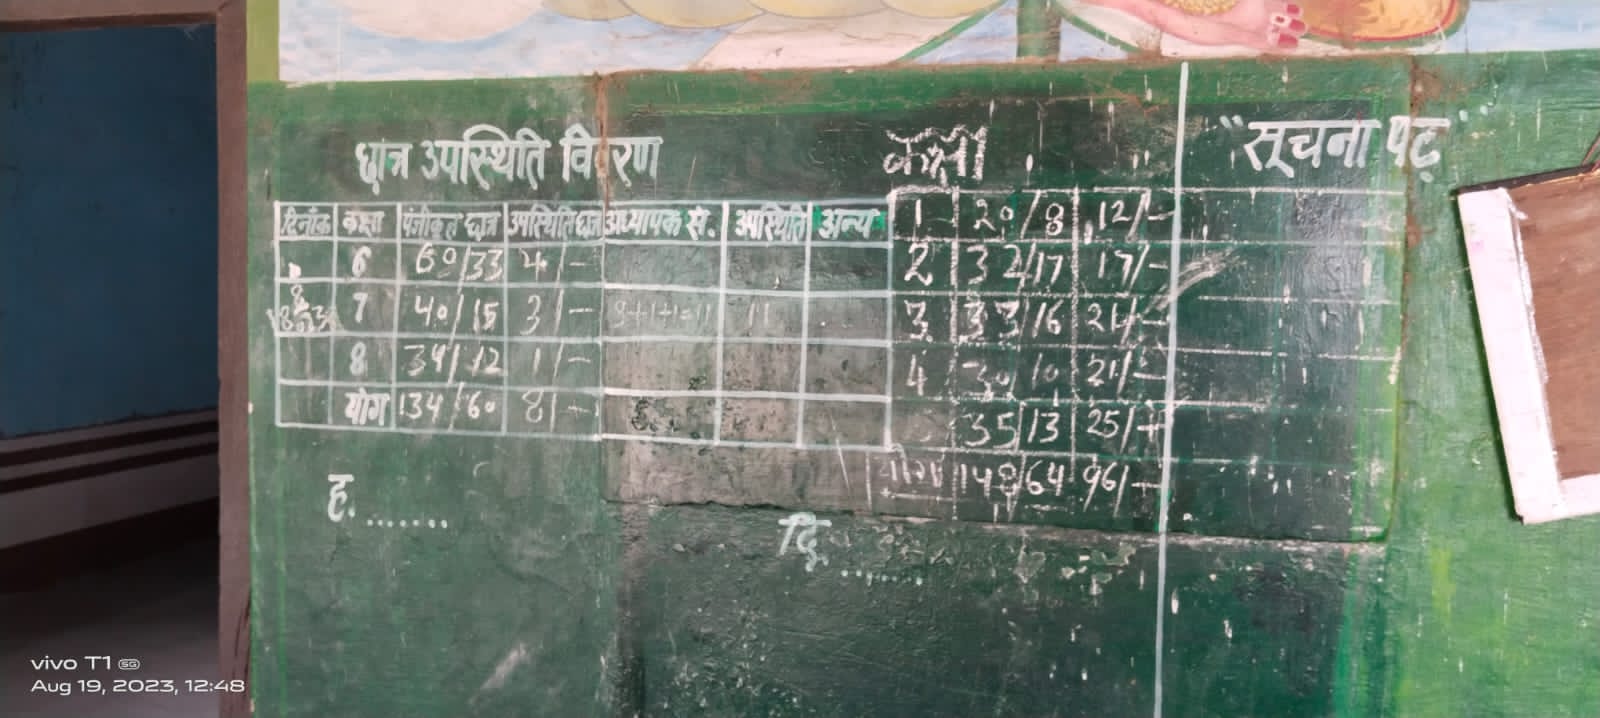 छात्र उपस्थिति विवरण
कक्षा
"सूचना पट्ट"
दिनाँक कक्षा पंजीकृत छात्र उपस्थिति छात्र अध्यापक सं. उपस्थिति अन्य
6 60/33 4/-
7 40/15 3/- 9+1+1=11 11
8 34/12 1/-
योग 134/60 8/-
1 20/8 12/-
2 32/17 17/-
3 33/16 21/-
4 30/10 21/-
35/13 25/-
योग 148/64 96/-
ह. .......
दि. .......
vivo T1 5G
Aug 19, 2023, 12:48